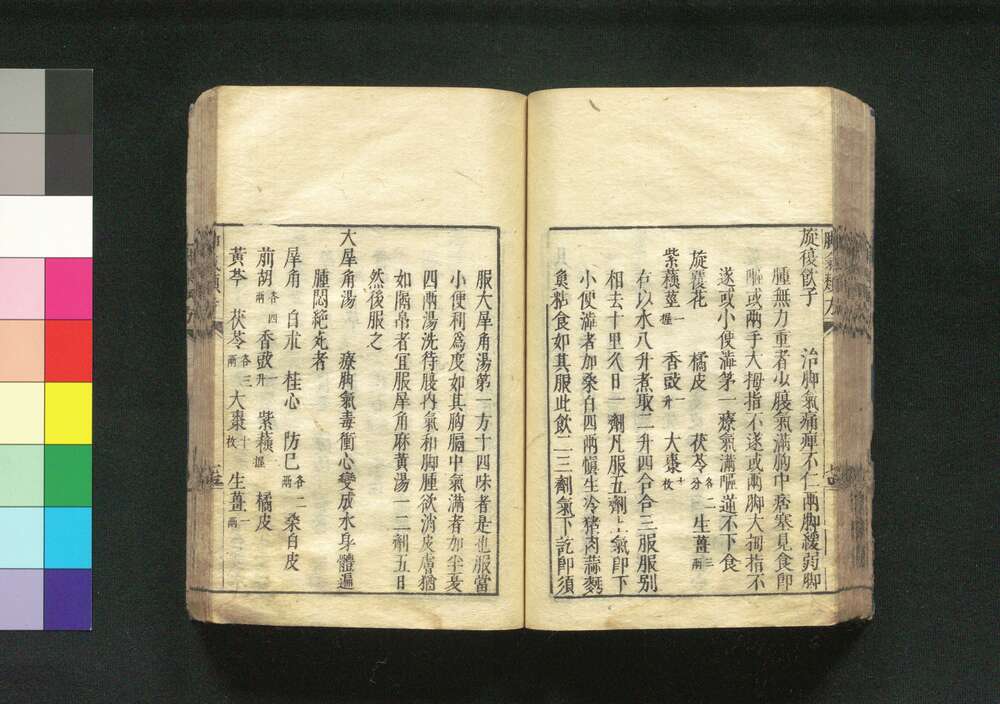 旋覆飲子　治脚氣痛痺不仁兩脚緩弱脚
腫無力重者少腹氣滿胸中痞塞見食卽
嘔或兩手大拇指不遂或兩脚大拇指不
遂或小便澁第一療氣滿嘔逆不下食
旋覆花　橘皮　茯苓各二分　生薑三兩
紫蘓莖一握　香豉一升　大棗十枚
右以水八升煮取二升四合分三服服別
相去十里久日一劑凡服五劑上氣卽下
小便澁者加桑白四兩愼生冷猪肉蒜麪
魚粘食如其服此飲二三劑氣下訖卽須
服大犀角湯第一方十四味者是也服當
小便利爲度如其胸膈中氣滿者加半夏
四兩湯洗待腹內氣和脚腫欲消皮膚猶
如隔帛者宜服犀角麻黃湯一二劑五日
然後服之
大犀角湯　療脚氣毒衝心變成水身體遍
腫悶絶死者
犀角　白朮　桂心　防巳各二兩　桑白皮
前胡各四兩　香豉一升　紫蘓一握　橘皮
黃芩　茯苓各三兩　大棗十枚　生薑一兩